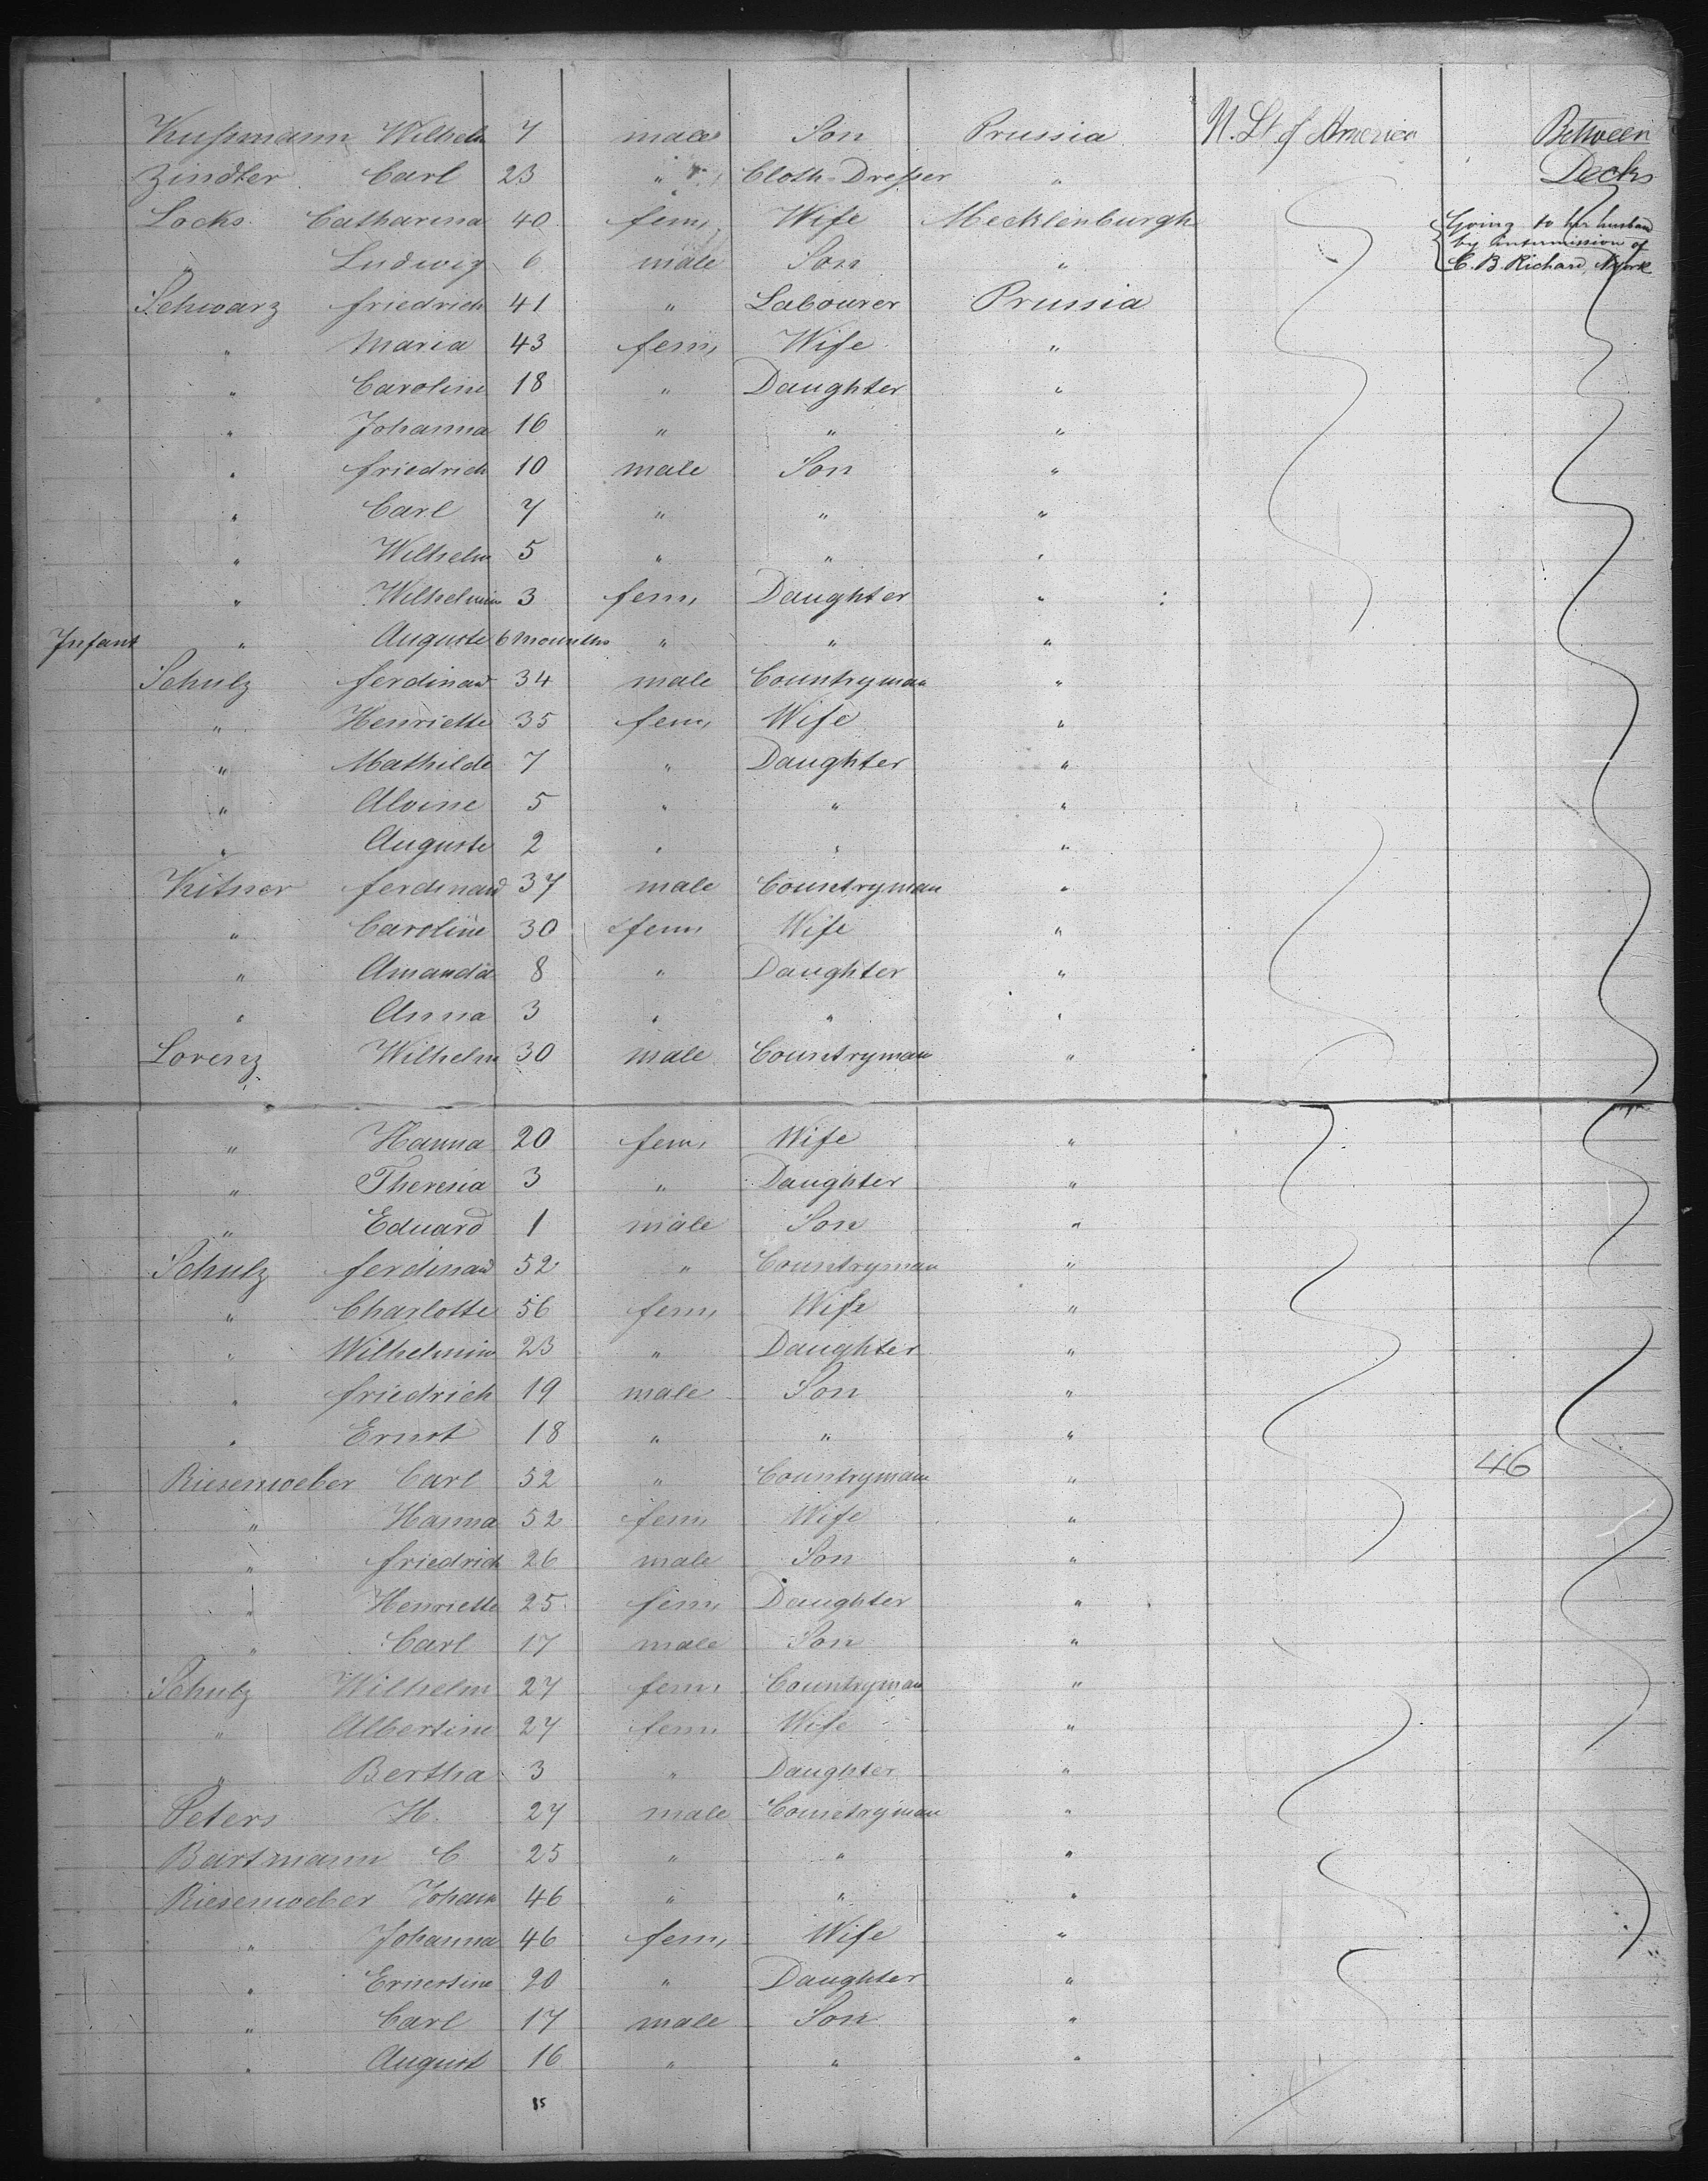 Kussmann Wilhelm 7 male Son Prussia U. St. of America Between
Zindler Carl 23 " Cloth-Dresser " Decks
Locks Catharina 40 fem, Wife Mecklenburgh Going to her husband
by intermission of
" Ludwig 6 male Son " C. B. Richard, NYork
Schwarz friedrich 41 " Labourer Prussia
" Maria 43 fem, Wife "
" Caroline 18 " Daughter "
" Johanna 16 " " "
" friedrich 10 male Son "
" Carl 7 " " "
" Wilhelm 5 " " "
" Wilhelmine 3 fem, Daughter "
Infant " Auguste 6 Mounths " " "
Schulz ferdinand 34 male Countryman "
" Henriette 35 fem, Wife "
" Mathilde 7 " Daughter "
" Alvine 5 " " "
" Auguste 2 " " "
Kitner ferdinand 37 male Countryman "
" Caroline 30 fem, Wife "
" Amanda 8 " Daughter "
" Anna 3 " " "
Lorenz Wilhelm 30 male Countryman "
" Hanna 20 fem, Wife "
" Theresia 3 " Daughter "
" Eduard 1 male Son "
Schulz ferdinand 52 " Countryman "
" Charlotte 56 fem, Wife "
" Wilhelmine 23 " Daughter "
" friedrich 19 male Son "
" Ernst 18 " " "
Riesenweber Carl 52 " Countryman " 46
" Hanna 52 fem, Wife "
" friedrich 26 male Son "
" Henriette 25 fem, Daughter "
" Carl 17 male Son "
Schulz Wilhelm 27 fem, Countryman "
" Albertine 27 fem, Wife "
" Bertha 3 " Daughter "
Peters H. 27 male Countryman "
Bartmann C 25 " " "
Riesenweber Johann 46 " " "
" Johanna 46 fem, Wife "
" Ernestine 20 " Daughter "
" Carl 17 male Son "
" August 16 " " "